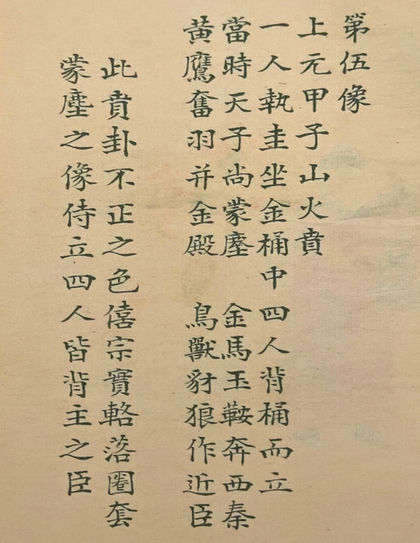 第伍像
上元甲子山火賁
一人執圭坐金桶中四人背桶而立
當時天子尚蒙塵　金馬玉鞍奔西秦
黃鷹奮羽并金殿　鳥獸豺狼作近臣
此賁卦不正之色僖宗實輅落圈套
蒙塵之像侍立四人皆背主之臣